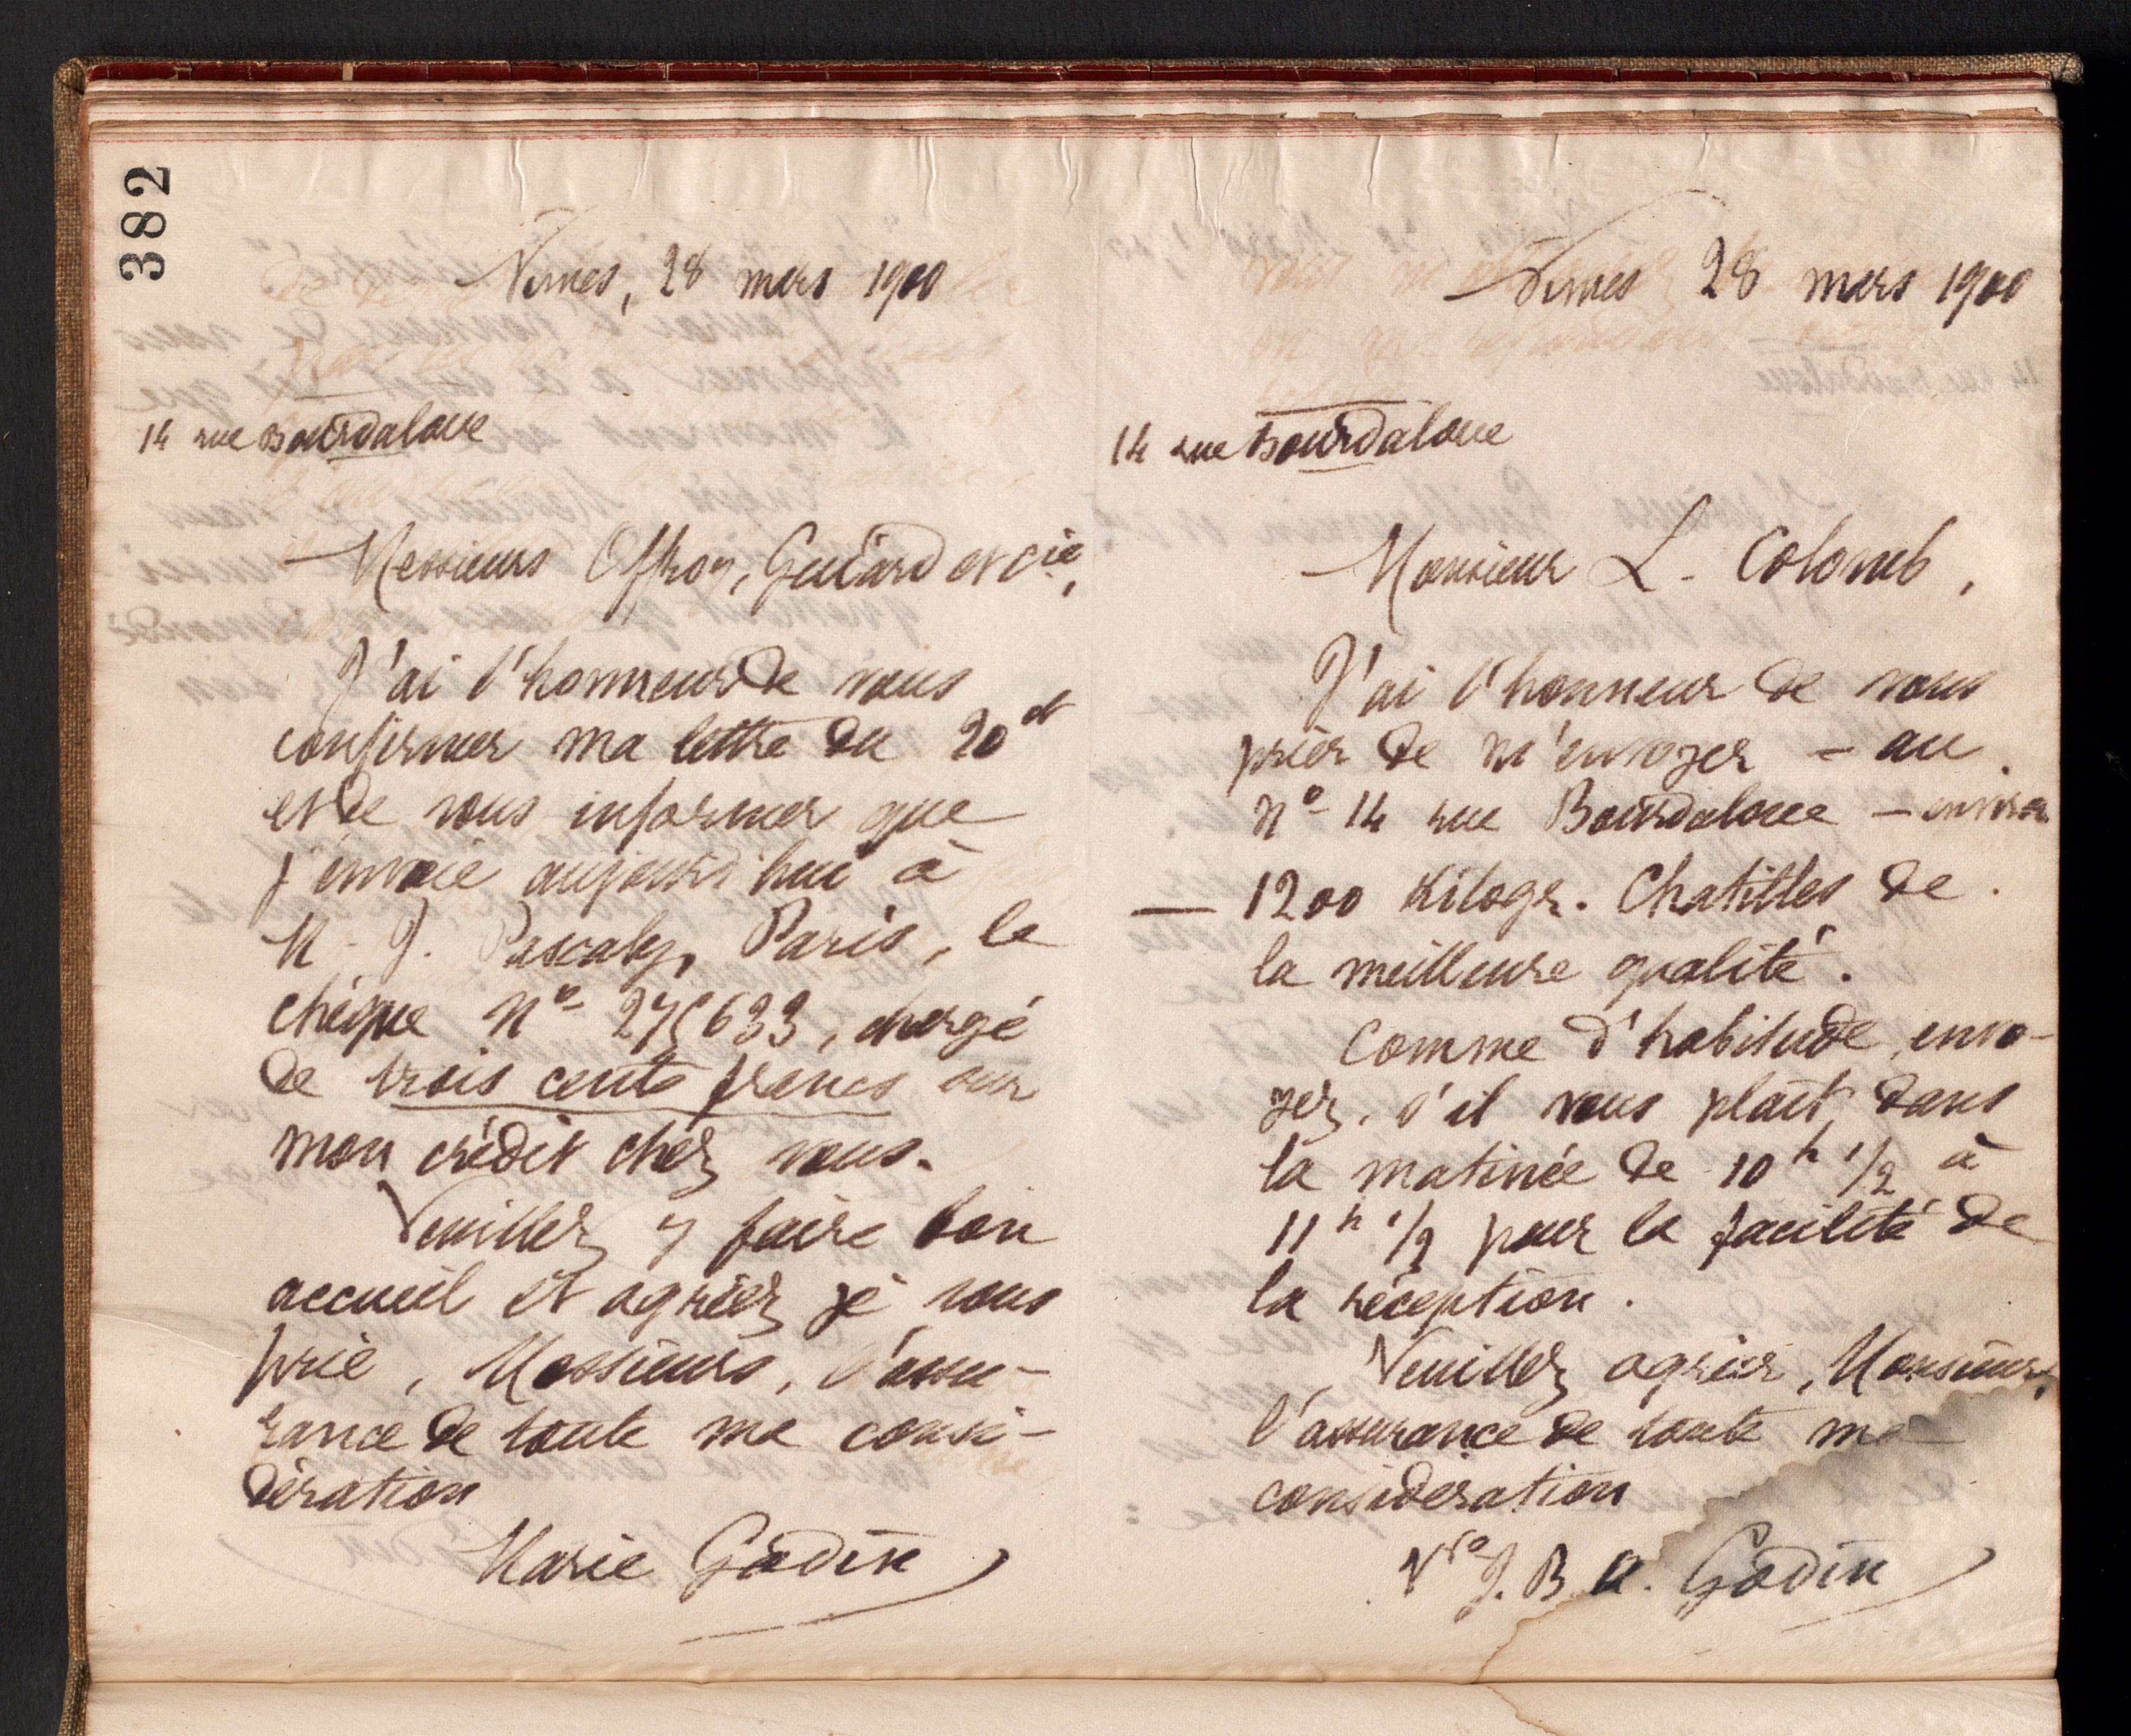 382
Nîmes, 28 mars 1900
14 rue Bourdaloue
Messieurs Offroy, Guiard et Cie,
J'ai l'honneur de vous
confirmer ma lettre du 20 ct
et de vous informer que
j'envoie aujourd'hui à
M. J. Pascaly, Paris, le
chèque No 275633, chargé
de trois cents francs sur
mon crédit chez vous.
Veuillez y faire bon
accueil et agréer, je vous
prie, Messieurs, l'assu-
rance de toute ma consi-
dération
Marie Godin
Nîmes 28 mars 1900
14 rue Bourdaloue
Monsieur L. Colomb,
J'ai l'honneur de vous
prier de m'envoyer – au
No 14 rue Bourdaloue – environ
— 1200 Kilogr. Chatilles de
la meilleure qualité.
Comme d'habitude, envo-
yez, s'il vous plaît, dans
la matinée de 10 h 1/2 à
11 h 1/2 pour la facilité de
la réception.
Veuillez agréer, Monsieur,
l'assurance de toute ma
considération
Vve J. B. A. Godin